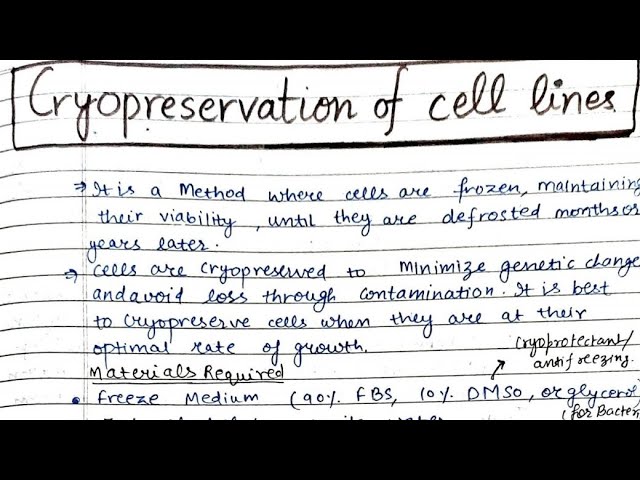 Cryopreservation of cell lines
⇒ It is a Method where cells are frozen, maintaining
their viability, until they are defrosted months or
years later.
⇒ Cells are cryopreserved to minimize genetic change
and avoid loss through contamination. It is best
to cryopreserve cells when they are at their
optimal rate of growth.
cryoprotectant/
antifreezing.
Materials Required
• Freeze Medium (90% FBS, 10% DMSO, or glycerol)
(for Bacteri